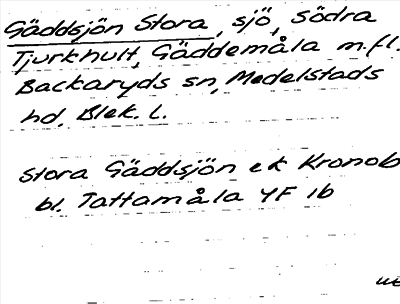 Gäddsjön Stora, sjö, Södra
Tjurkhult, Gäddemåla m.fl.
Backaryds sn, Medelstads
hd, Blek. l.
Stora Gäddsjön ek Kronob
bl. Tattamåla YF 1b